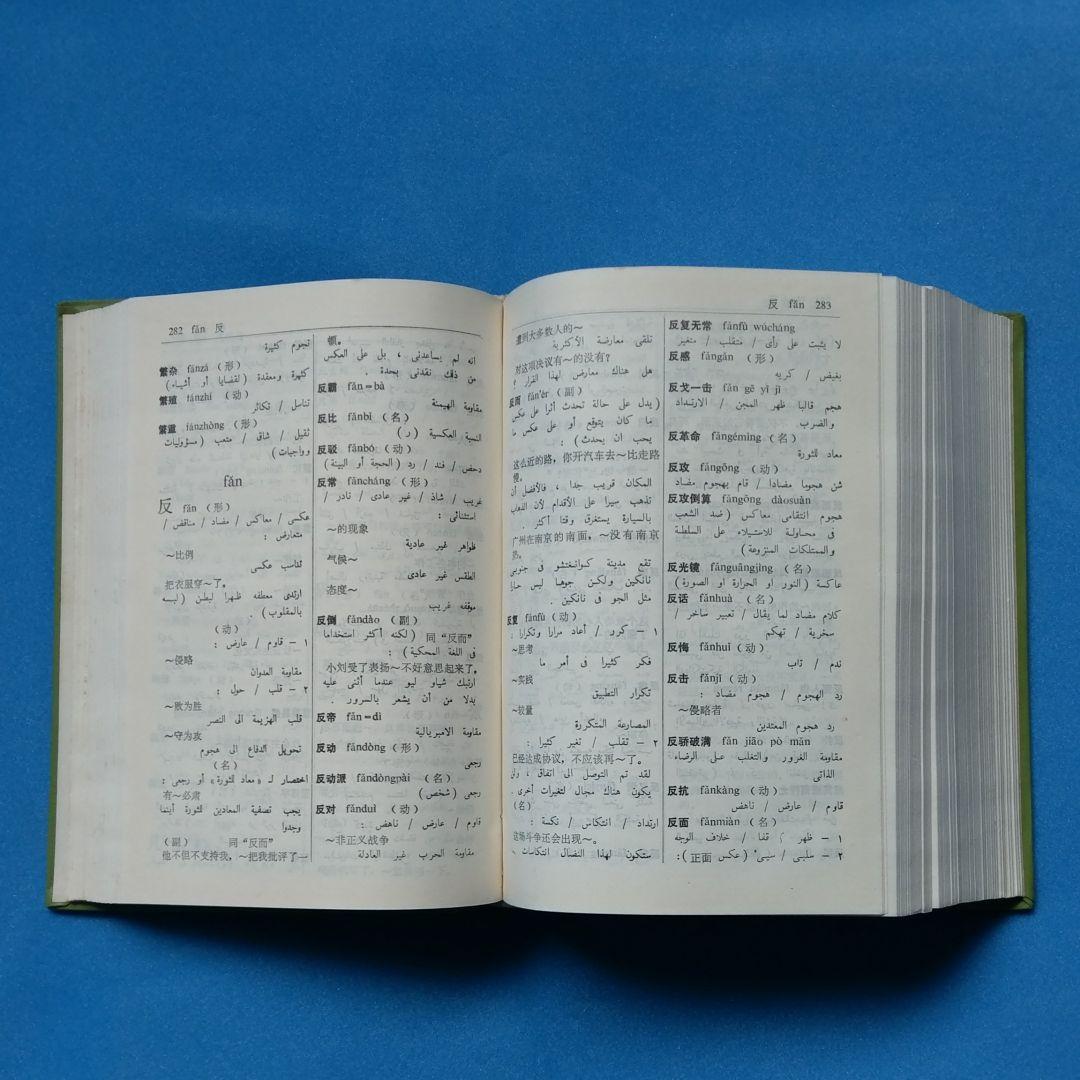 282 fǎn 反
نجوم كثيرة
繁杂 fánzá (形)
كثيرة ومعقدة (لقضايا أو أشياء)
繁殖 fánzhí (动)
تناسل / تكاثر
繁重 fánzhòng (形)
ثقيل / شاق / متعب (مسؤوليات
وواجبات)
fǎn
反 fǎn (形)
عكسى / معاكس / مضاد / مناقض /
متعارض :
~比例
تناسب عكسى
把衣服穿~了。
ارتدى معطفه ظهرا لبطن (لبسه
بالمقلوب)
(动)
١ – قاوم / عارض :
~侵略
مقاومة العدوان
٢ – قلب / حول :
~败为胜
قلب الهزيمة الى النصر
~守为攻
تحويل الدفاع الى هجوم
(名)
اختصار لـ «معاد للثورة» أو رجعى :
有~必肃
يجب تصفية المعادين للثورة أينما
وجدوا
(副) 同“反而”
他不但不支持我，~把我批评了一
顿。
انه لم يساعدنى ، بل على العكس
من ذلك نقدنى بحدة .
反霸 fǎn=bà
مقاومة الهيمنة
反比 fǎnbǐ (名)
النسبة العكسية (ر)
反驳 fǎnbó (动)
دحض / فند / رد (الحجة أو البينة)
反常 fǎncháng (形)
غريب / شاذ / غير عادى / نادر /
استثنائى :
~的现象
ظواهر غير عادية
气候~
الطقس غير عادى
态度~
موقفه غريب
反倒 fǎndào (副)
同“反而” (لكنه أكثر استخداما
فى اللغة المحكية) :
小刘受了表扬~不好意思起来了。
ارتبك شياو ليو عندما أثنى عليه
بدلا من أن يشعر بالسرور .
反帝 fǎn=dì
مقاومة الامبريالية
反动 fǎndòng (形)
رجعى
反动派 fǎndòngpài (名)
رجعى (شخص)
反对 fǎnduì (动)
قاوم / عارض / ناهض :
~非正义战争
مقاومة الحرب غير العادلة
反 fǎn 283
遭到大多数人的~
تلقى معارضة الأكثرية
对这项决议有~的没有?
هل هناك معارض لهذا القرار ؟
反而 fǎn'ér (副)
(يدل على حالة تحدث أثرا على عكس
ما كان يتوقع أو على عكس ما
يجب ان يحدث) :
这么近的路，你开汽车去~比走路
慢。
المكان قريب جدا ، فالأفضل أن
تذهب سيرا على الأقدام لأن الذهاب
بالسيارة يستغرق وقتا أكثر .
广州在南京的南面，~没有南京
热。
تقع مدينة كوانغتشو فى جنوبى
نانكين ولكن جوها ليس حارا
مثل الجو فى نانكين .
反复 fǎnfù (动)
١ – كرر / أعاد مرارا وتكرارا :
~思考
فكر كثيرا فى أمر ما
~实践
تكرار التطبيق
~较量
المصارعة المتكررة
٢ – تقلب / تغير كثيرا :
已经达成协议，不应该再~了。
لقد تم التوصل الى اتفاق ، ولن
يكون هناك مجال لتغيرات أخرى .
(名)
ارتداد / انتكاس / نكسة :
这场斗争还会出现~。
ستكون لهذا النضال انتكاسات
反复无常 fǎnfù wúcháng
لا يثبت على رأى / متقلب / متغير
反感 fǎngǎn (形)
بغيض / كريه
反戈一击 fǎn gē yī jī
هجم قالبا ظهر المجن / الارتداد
والضرب
反革命 fǎngémìng (名)
معاد للثورة
反攻 fǎngōng (动)
شن هجوما مضادا / قام بهجوم مضاد
反攻倒算 fǎngōng dàosuàn
هجوم انتقامى معاكس (ضد الشعب
فى محاولة للاستيلاء على السلطة
والممتلكات المنزوعة)
反光镜 fǎnguāngjìng (名)
عاكسة (النور أو الحرارة أو الصورة)
反话 fǎnhuà (名)
كلام مضاد لما يقال / تعبير ساخر /
سخرية / تهكم
反悔 fǎnhuǐ (动)
ندم / تاب
反击 fǎnjī (动)
رد الهجوم / هجوم مضاد :
~侵略者
رد هجوم المعتدين
反骄破满 fǎn jiāo pò mǎn
مقاومة الغرور والتغلب على الرضاء
الذاتى
反抗 fǎnkàng (动)
قاوم / عارض / ناهض
反面 fǎnmiàn (名)
١ – ظهر / قفا / خلاف الوجه
٢ – سلبى / سيىء (عكس 正面):